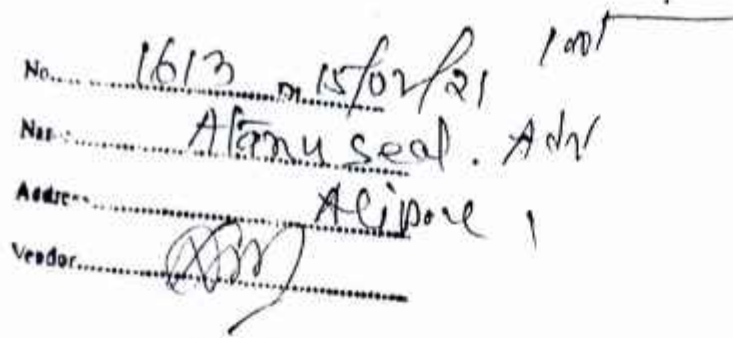 No..... 1613 Dt. 15/02/21 100/
Name..... Atanu Seal. Adv
Address..... Alipore,
Vendor.....